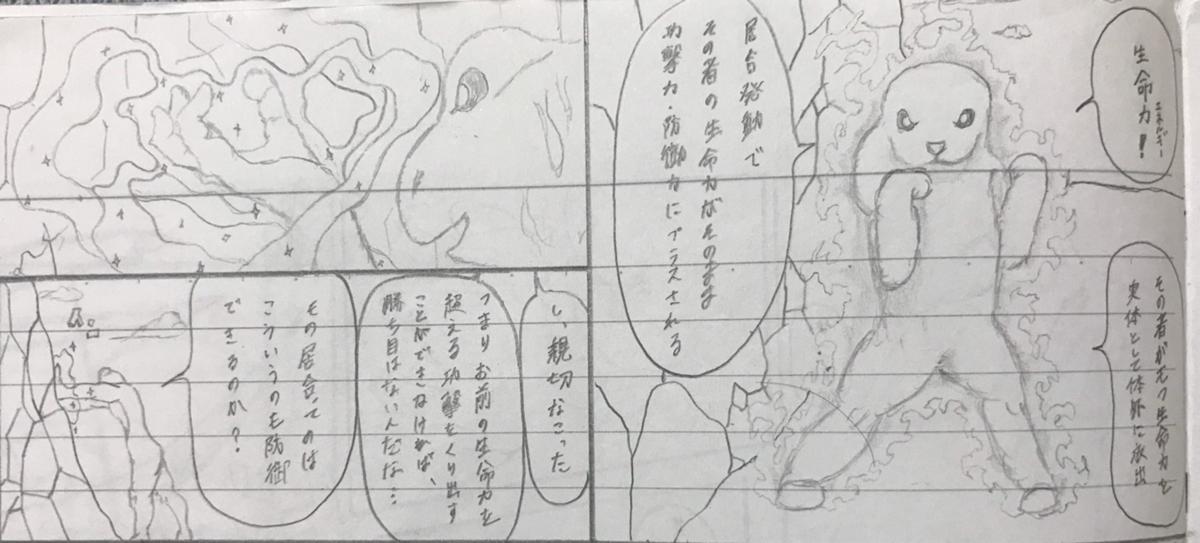 生命力！
エネルギー
その者がもつ生命力を
実体として体外に放出
居合発動で
その者の生命力がそのまま
攻撃力・防御力にプラスされる
し、親切なこった
つまりお前の生命力を
超える攻撃をくり出す
ことができなければ、
勝ち目はないんだな…
その居合ってのは
こういうのも防御
できるのか？